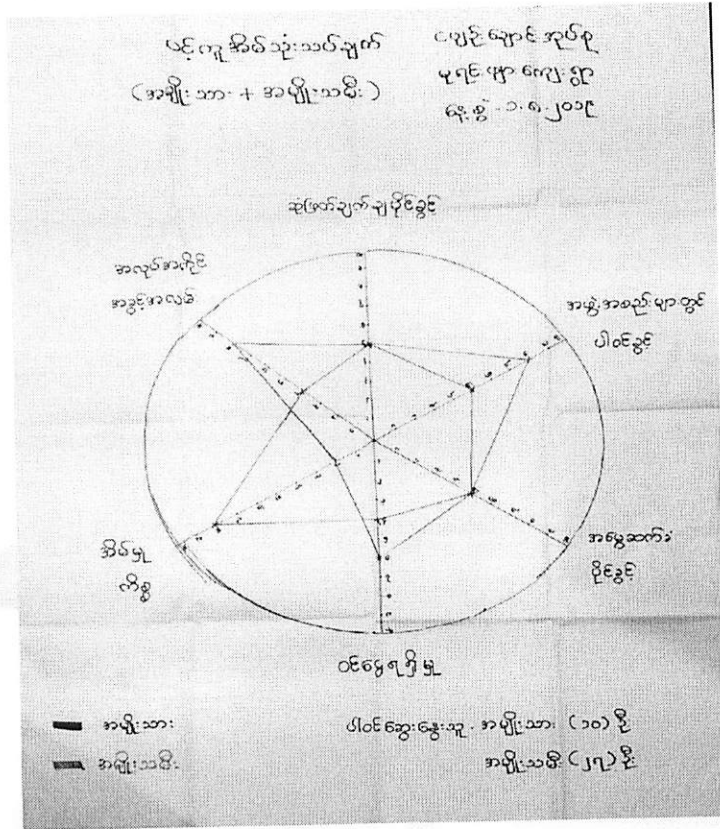 ပင့်ကူအိမ်သုံးသပ်ချက်
(အမျိုးသား + အမျိုးသမီး)
ငပျဉ်းချောင်းအုပ်စု
ကျေးရွာ
နေ့စွဲ - ၁.၈.၂၀၁၉
ဆုံးဖြတ်ချက်ချပိုင်ခွင့်
အလုပ်အကိုင်
အခွင့်အလမ်း
အဖွဲ့အစည်းများတွင်
ပါဝင်ခွင့်
အိမ်မှု
ကိစ္စ
အမွေဆက်ခံ
ပိုင်ခွင့်
ဝင်ငွေရရှိမှု
အမျိုးသား
အမျိုးသမီး
ပါဝင်ဆွေးနွေးသူ - အမျိုးသား (၁၀) ဦး
အမျိုးသမီး (၂၇) ဦး